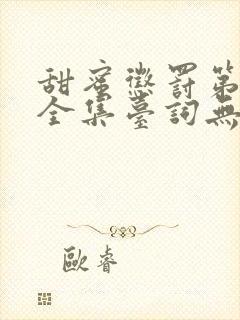 甜蜜懲罰第
全集臺詞無
歐睿